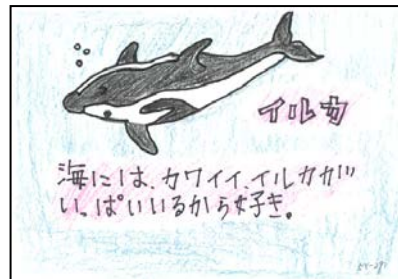 イルカ
海には、カワイイ、イルカが
いっぱいいるから好き。